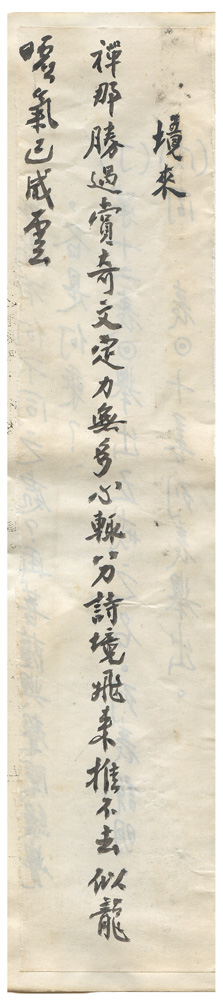 境來
禪那勝過賞奇文定力無多心輒分詩境飛來推不去似龍
噓氣已成雲